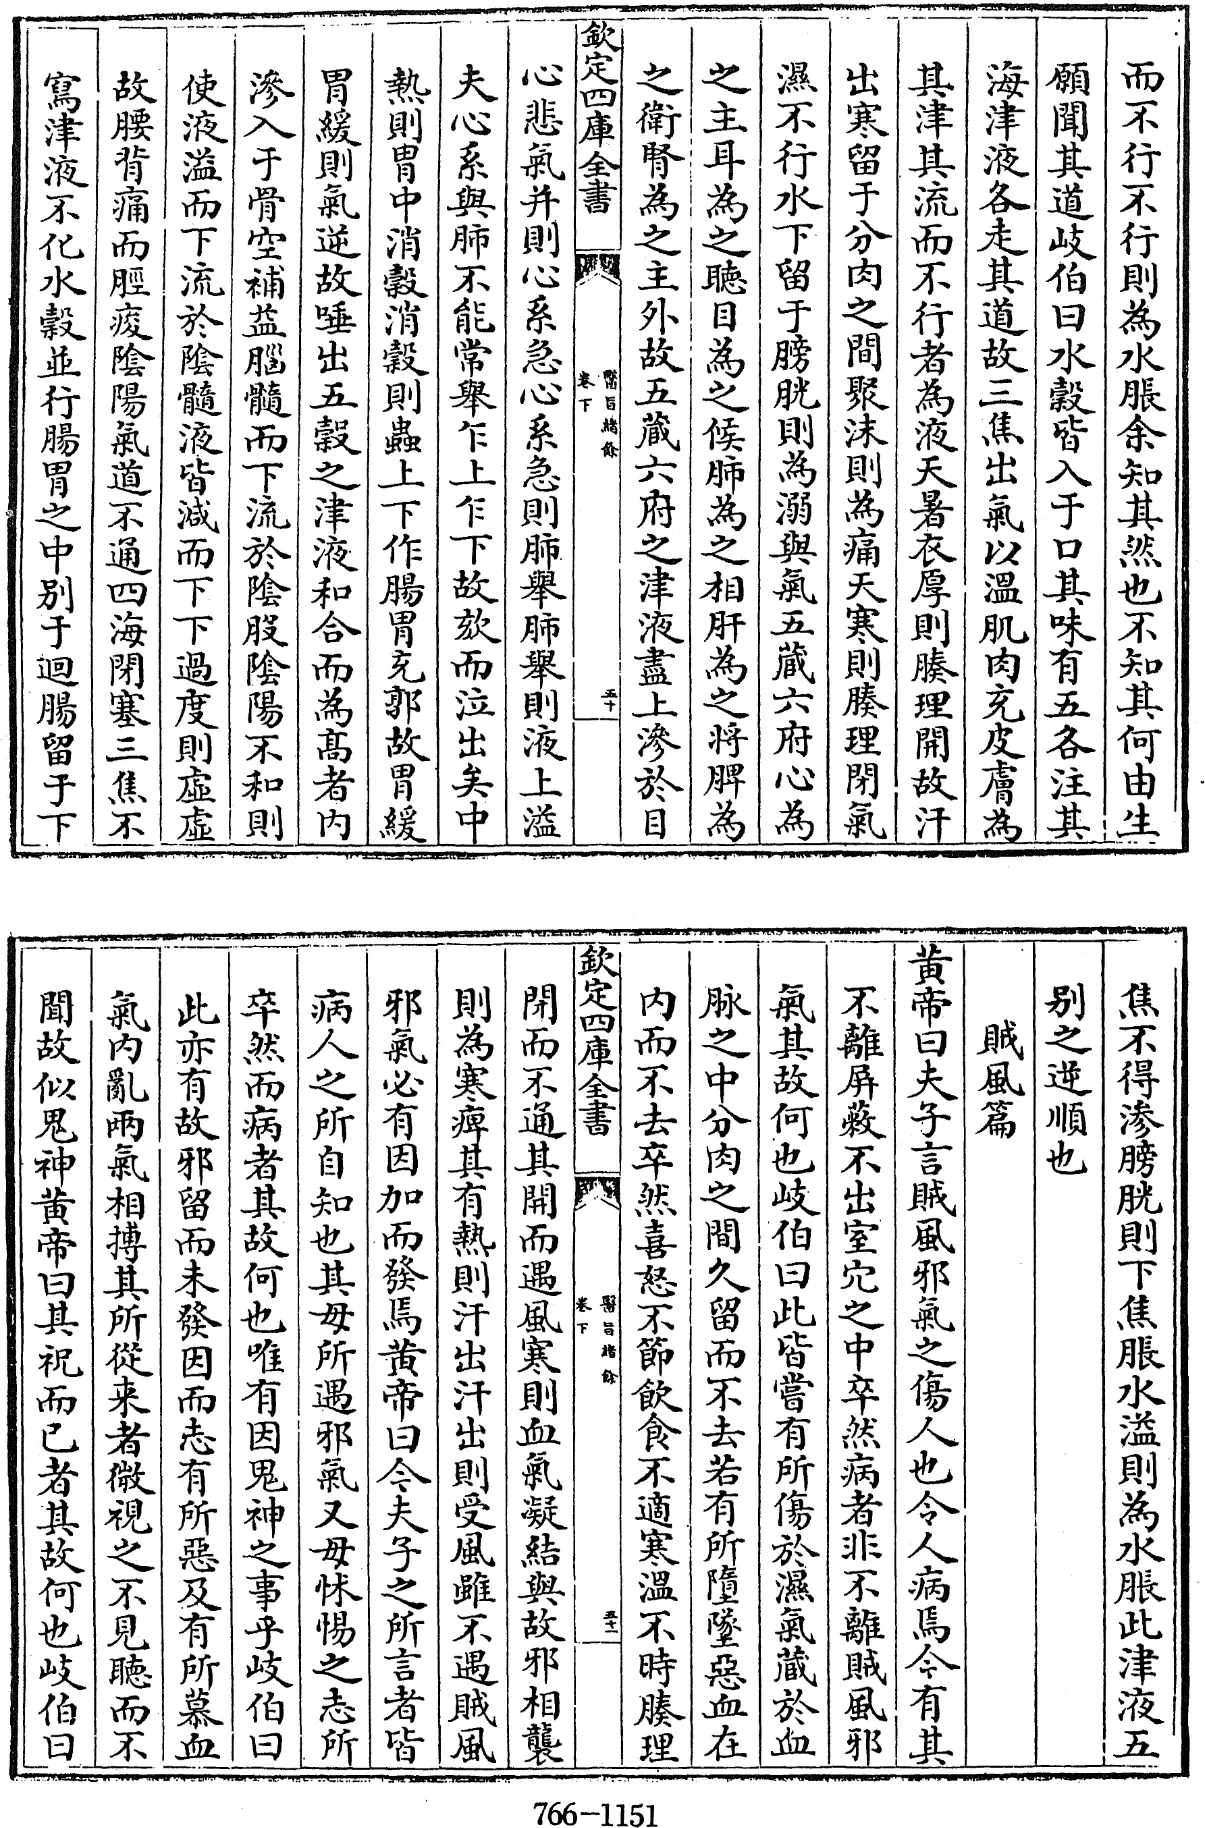 而不行不行則為水脹余知其然也不知其何由生
願聞其道岐伯曰水穀皆入于口其味有五各注其
海津液各走其道故三焦出氣以溫肌肉充皮膚為
其津其流而不行者為液天暑衣厚則腠理開故汗
出寒留于分肉之間聚沫則為痛天寒則腠理閉氣
濕不行水下留于膀胱則為溺與氣五藏六府心為
之主耳為之聽目為之候肺為之相肝為之將脾為
之衛腎為之主外故五藏六府之津液盡上滲於目
欽定四庫全書
醫旨緒餘
卷下
五十
心悲氣并則心系急心系急則肺舉肺舉則液上溢
夫心系與肺不能常舉乍上乍下故欬而泣出矣中
熱則胃中消穀消穀則蟲上下作腸胃充郭故胃緩
胃緩則氣逆故唾出五穀之津液和合而為髙者內
滲入于骨空補益腦髓而下流於陰股陰陽不和則
使液溢而下流於陰髓液皆減而下下過度則虛虛
故腰背痛而脛痠陰陽氣道不通四海閉塞三焦不
寫津液不化水穀並行腸胃之中別于迴腸留于下
焦不得滲膀胱則下焦脹水溢則為水脹此津液五
別之逆順也
賊風篇
黃帝曰夫子言賊風邪氣之傷人也令人病焉今有其
不離屏蔽不出室穴之中卒然病者非不離賊風邪
氣其故何也岐伯曰此皆嘗有所傷於濕氣藏於血
脉之中分肉之間久留而不去若有所墮墜惡血在
內而不去卒然喜怒不節飲食不適寒溫不時腠理
欽定四庫全書
醫旨緒餘
卷下
五十一
閉而不通其開而遇風寒則血氣凝結與故邪相襲
則為寒痺其有熱則汗出汗出則受風雖不遇賊風
邪氣必有因加而發焉黃帝曰今夫子之所言者皆
病人之所自知也其毋所遇邪氣又毋怵惕之志所
卒然而病者其故何也唯有因鬼神之事乎岐伯曰
此亦有故邪留而未發因而志有所惡及有所慕血
氣內亂兩氣相搏其所從来者微視之不見聽而不
聞故似鬼神黃帝曰其祝而已者其故何也岐伯曰
766-1151